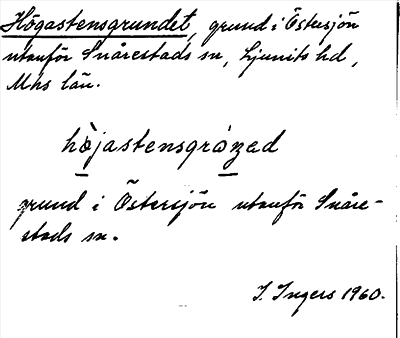 Högastensgrundet, grund i Östersjön
utanför Snårestads sn, Ljunits hd,
Mhs län.
höjastensgrȧnad
grund i Östersjön utanför Snåre-
stads sn.
I. Ingers 1960.